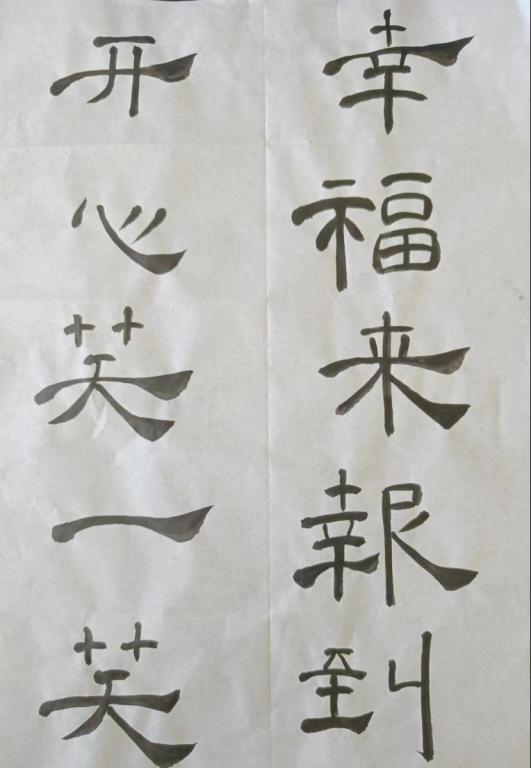 幸福来報到
开心笑一笑